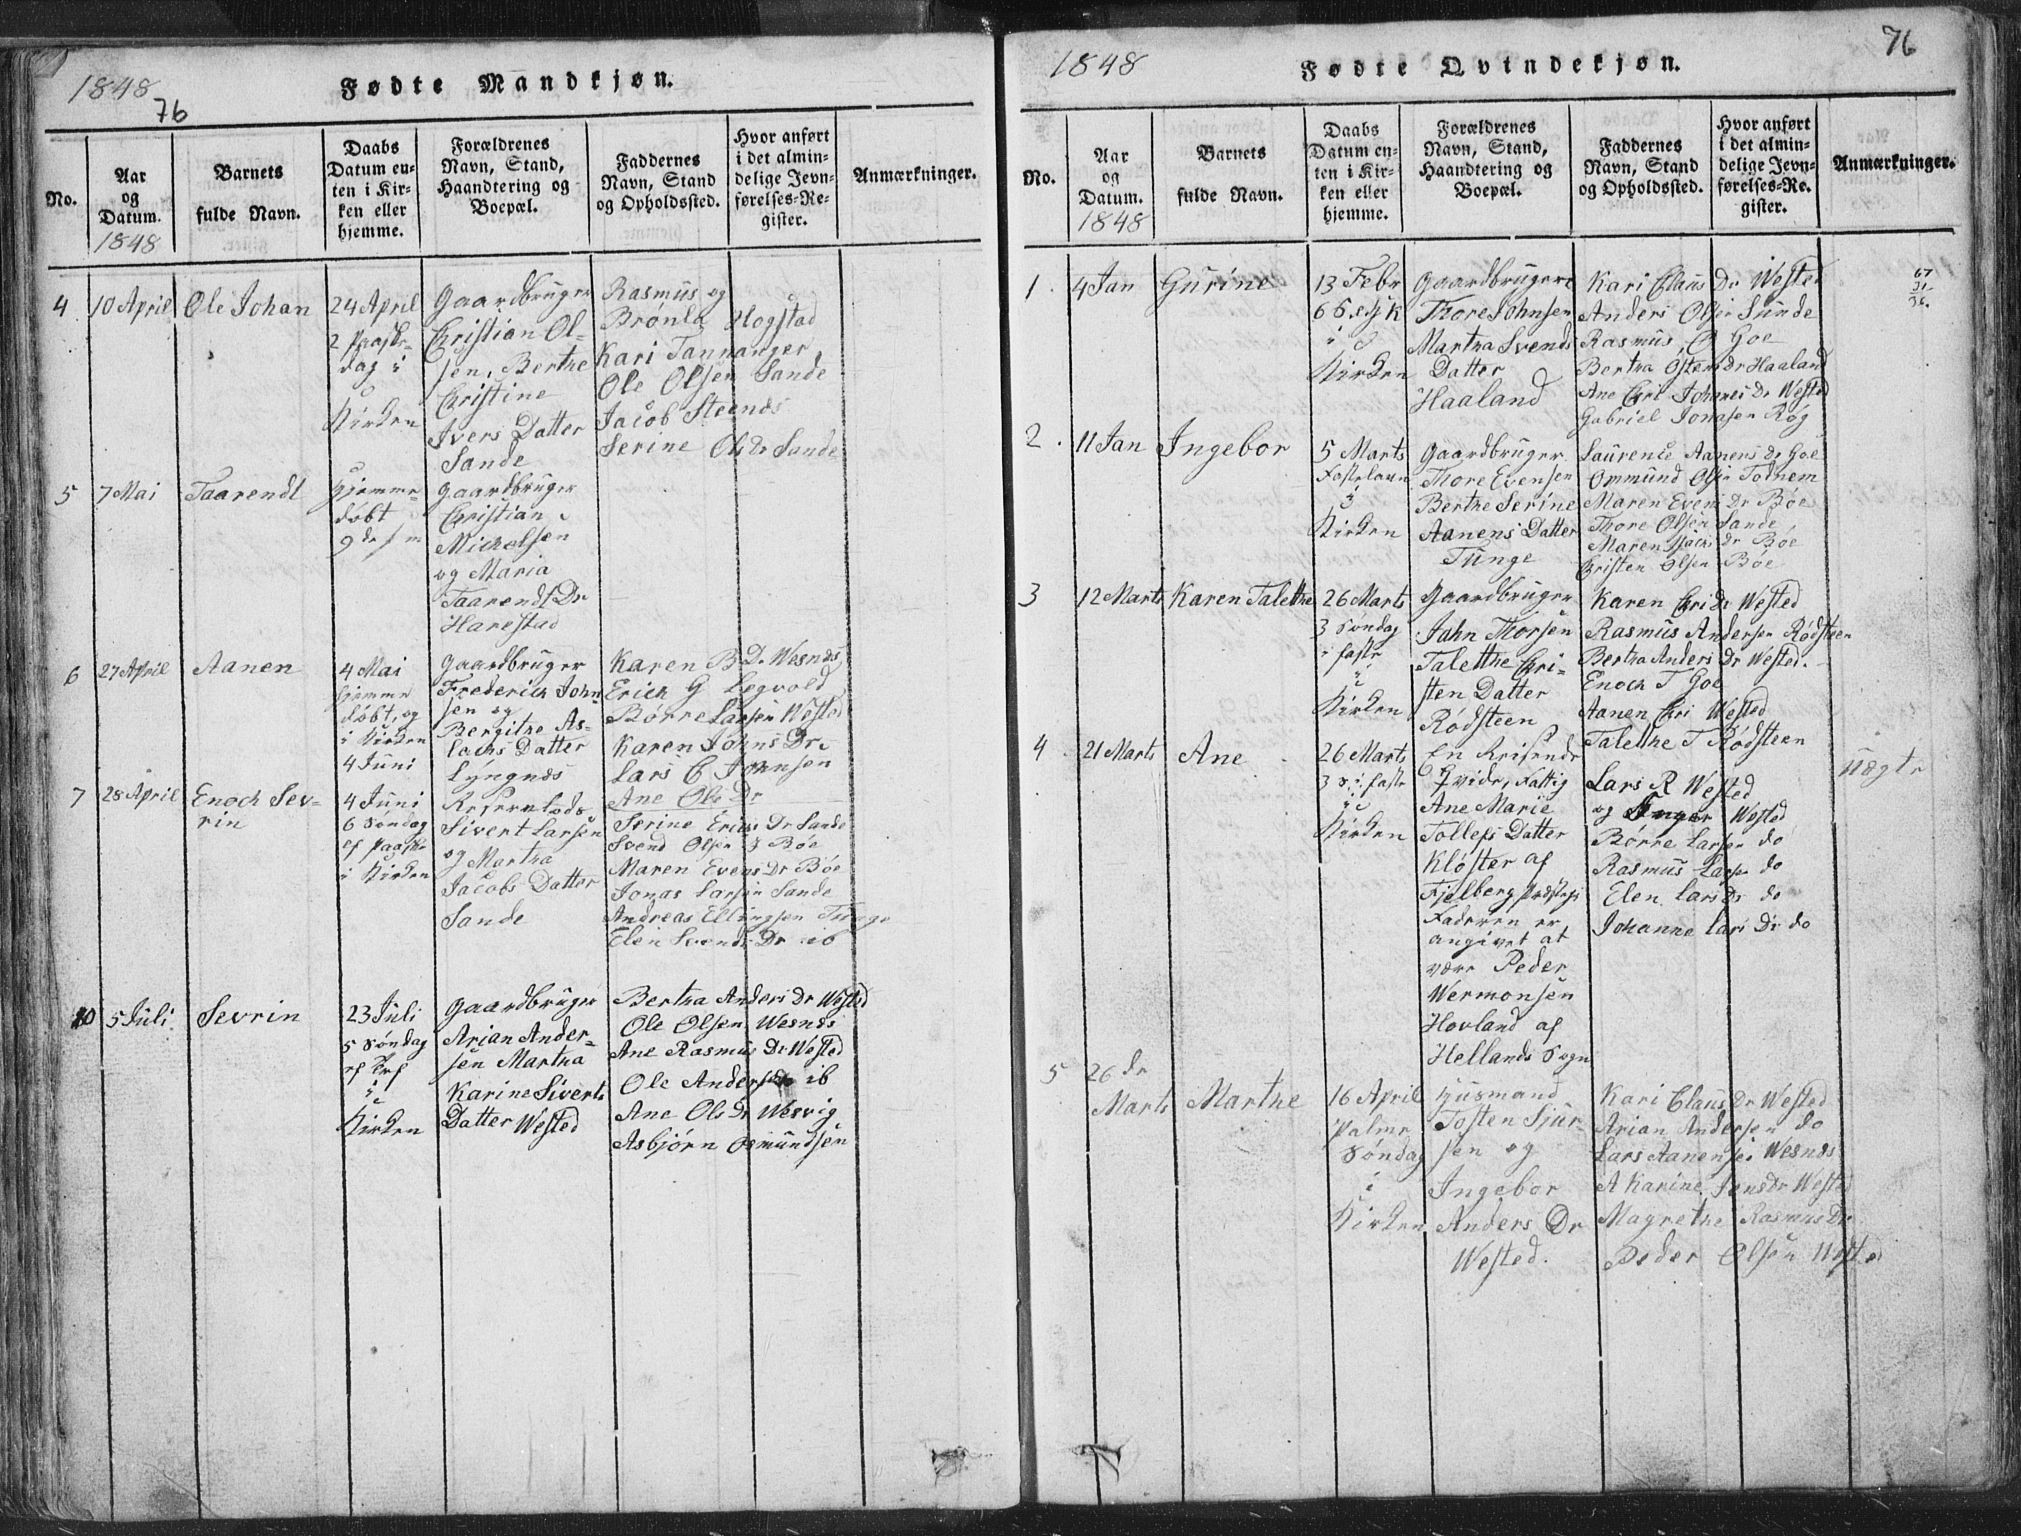 1848
76
Fødte Mandkjøn.
No.
Aar
og
Datum.
1848
Barnets
fulde Navn.
Daabs
Datum en-
ten i Kir-
ken eller
hjemme.
Forældrenes
Navn, Stand,
Haandtering og
Boepæl.
Faddernes
Navn, Stand
og Opholdssted.
Hvor anført
i det almin-
delige Jevn-
førelses-Re-
gister.
Anmærkninger.
4
10 April
Ole Johan
24 April
2 Paaske-
dag i
Kirken
Gaardbruger
Christian Ol-
sen, Berthe
Christine
Ivers Datter
Sande
Rasmus og
Bronla Hogstad
Kari Tannanger
Ole Olsen Sande
Jacob Steends
Serine Ols Dr Sande
5
7 Mai
Taarendt
Hjemme-
døbt
9 ds m
Gaardbruger
Christian
Michelsen
og Maria
Taarendt Dr
Harestad
6
27 April
Aanen
4 Mai
hjemme
døbt, og
i Kirken
4 Juni
Gaardbruger
Frederich John
sen og
Bergithe As-
lachs Datter
Lyngnes
Karen B D. Wesnes
Erich G Legvold
Børre Larsen Wested
Karen Johns Dr.
Lars C Johnsen
Ane Ols Dr
7
28 April
Enoch Sev-
rin
4 Juni
6 Søndag
ef Paaske
i Kirken
Sivert Larsen
og Martha
Jacobs Datter
Sande
Serine Erichs Dr Sande
Svend Olsen Bøe
Maren Evens Dr Bøe
Jonas Larsen Sande
Andreas Ellingsen Tunge
Elen Svends Dr ib
10
5 Juli
Sevrin
23 Juli
5 Søndag
ef Tref
i
Kirken
Gaardbruger
Arian Ander-
sen Martha
Karine Siverts
Datter Wested
Bertha Anders Dr Wested
Ole Olsen Wesnes
Ane Rasmus Dr Wested
Ole Andersen ib
Ane Ols Dr Wesvig
Asbjørn Osmundsen
1848
Fødte Qvindekjøn.
76
No.
Aar
og
Datum.
1848
Barnets
fulde Navn.
Daabs
Datum en-
ten i Kir-
ken eller
hjemme.
Forældrenes
Navn, Stand,
Haandtering og
Boepæl.
Faddernes
Navn, Stand
og Opholdssted.
Hvor anført
i det almin-
delige Jevn-
førelses-Re-
gister.
Anmærkninger.
1.
4 Jan
Gurine
13 Febr
6 S. e. H 3 K
i
Kirken
Gaardbruger
Thore Johnsen
Martha Svends
Datter
Haaland
Kari Claus Dr Wested
Anders Olsen Sunde
Rasmus O Goe
Bertha Ostens Dr Haaland
Ane Chri Johannes Dr Wested
Gabriel Jonasen Røg
2.
11 Jan
Ingebor
5 Marts
Fastelavn
i
Kirken
Gaardbruger
Thore Evensen
Berthe Serine
Aanens Datter
Tunge
Laurence Aanens dr Goe
Ommund Olsen Todnem
Maren Evens Dr Bøe
Thore Olsen Sande
Maren dr Bøe
Christen Olsen Bøe
3
12 Marts
Karen Talethe
26 Marts
3 Søndag
i faste
i
Kirken
Gaardbruger
Jahn Thorsen
Talethe Chri-
sten Datter
Rødsteen
Karen Chri Dr Wested
Rasmus Andersen Rødsteen
Bertha Anders Dr Wested.
Enoch T Goe
Aanen Chri Wested
Talethe T Rødsteen
4
21 Marts
Ane
26 Marts
3 S. i faste
i
Kirken
En Reisende
Qvide, Fattig
Ane Marie
Tollefs Datter
Kløster af
Fjelberg Præstegj
Faderen er
angivet at
være Peder
Wermonsen
Hovland af
Hellands Sogn
Lars R Wested
og Inger Wested
Børre Larsen do
Rasmus Larsen do
Elen Lars Dr do
Johanne Lars Dr do
uægte
5
26 de
Marts
Marthe
16 April
Palme
Søndag
i
Kirken
Husmand
Tosten Sjur-
sen og
Ingebor
Anders Dr
Wested.
Kari Claus Dr Wested
Arian Andersen do
Lars Aanensen Wesnes
A Karine Jens Dr Wested
Magrethe Rasmus Dr
Peder Olsen Wested